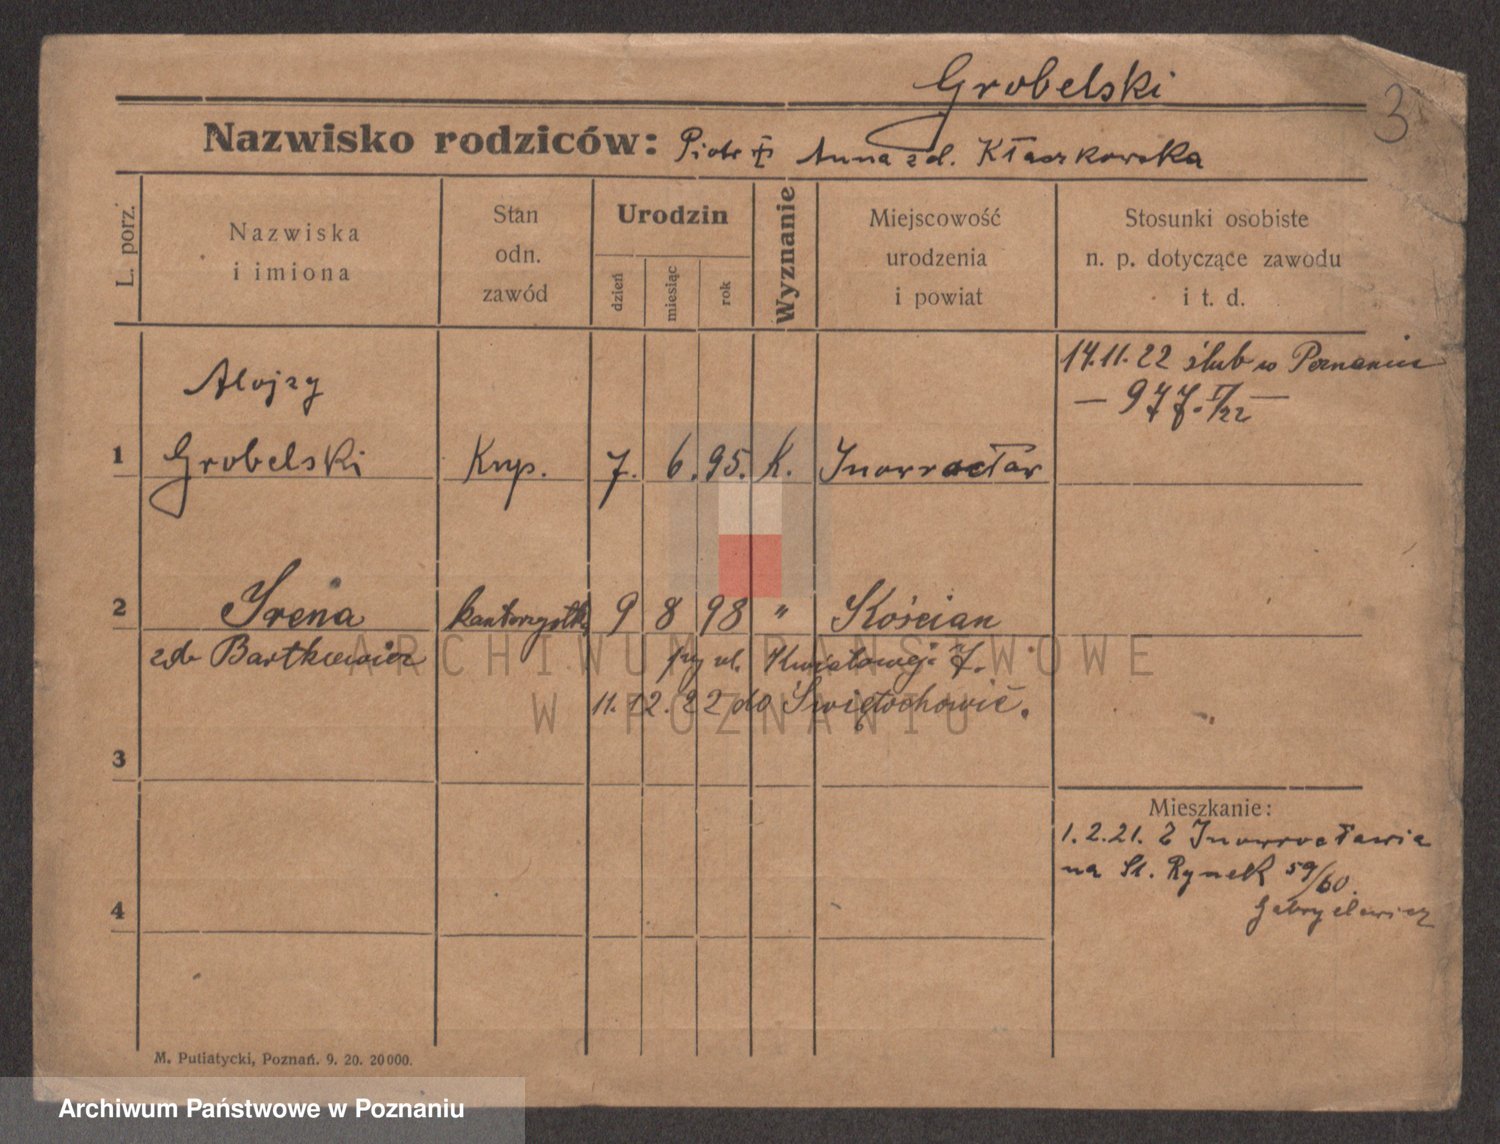 Grobelski
3
Nazwisko rodziców: Piotr i Anna zd. Kłaczkowska
L. porz.
Nazwiska
i imiona
Stan
odn.
zawód
Urodzin
dzień
miesiąc
rok
Wyznanie
Miejscowość
urodzenia
i powiat
Stosunki osobiste
n. p. dotyczące zawodu
i t. d.
14.11.22 ślub w Poznaniu
– 977.I/22 –
Alojzy
1 Grobelski Kup. 7. 6. 95. K. Inowrocław
2 Irena kantorzystka 9 8 98 " Kościan
zd. Bartkiewicz przy ul. Kwiatowej 7.
11.12.22 do Świętochowic.
3
Mieszkanie:
1.2.21. Z Inowrocławia
na St. Rynek 59/60.
Gabryelewicz
4
M. Putiatycki, Poznań. 9. 20. 20000.
ARCHIWUM PAŃSTWOWE
W POZNANIU
Archiwum Państwowe w Poznaniu